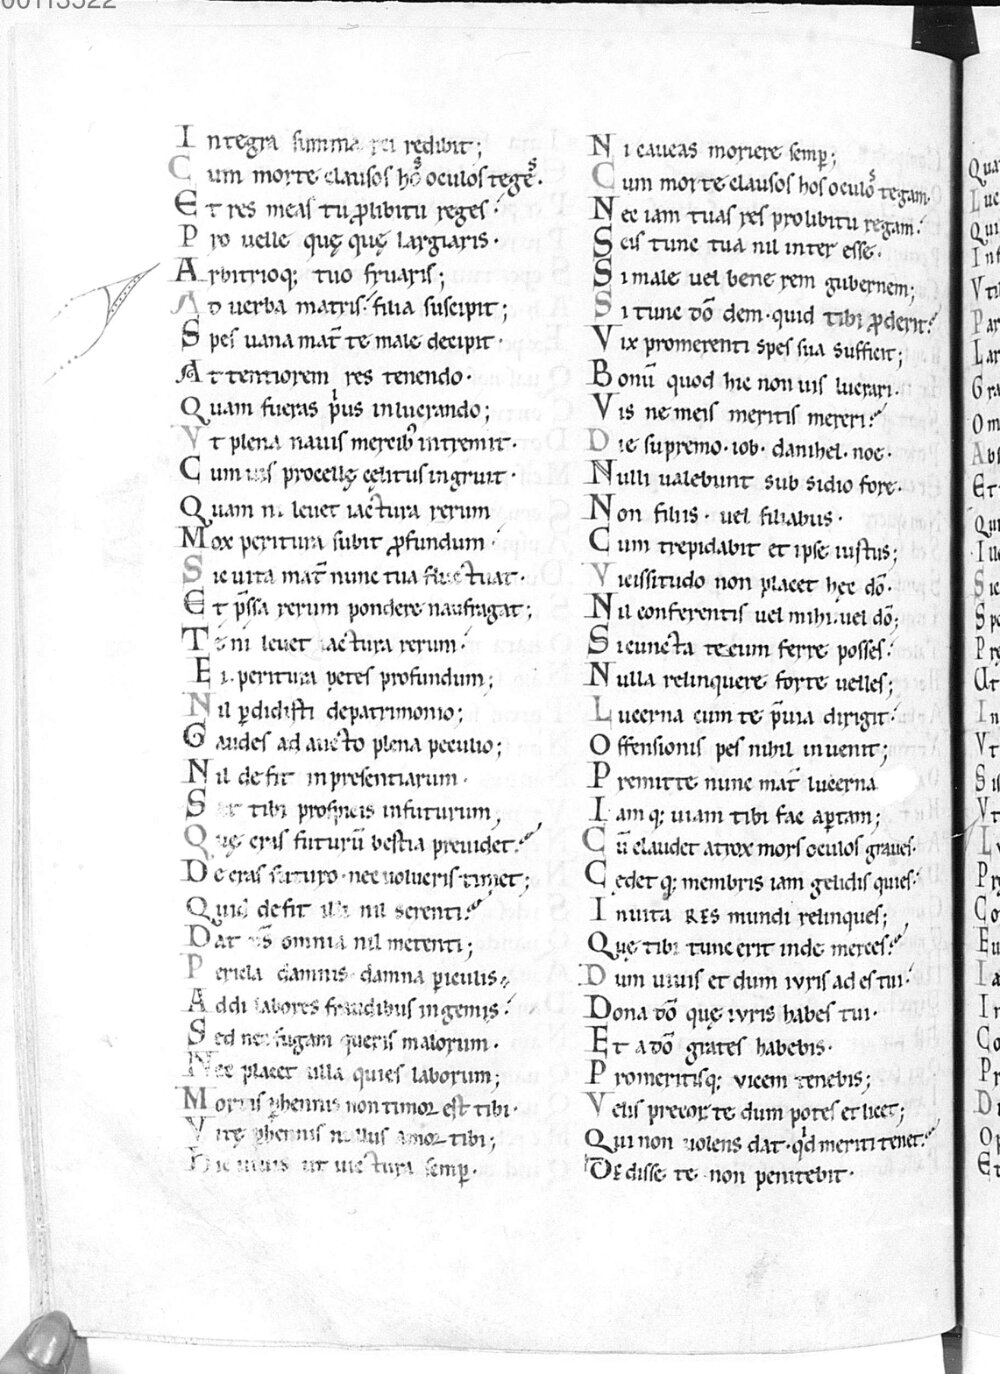 Integra summa rei redibit;
Cum morte clausos hoˢ oculos tegeˢ.
Et res meas tu ꝓlibitu reges.
Pro uelle quę quę largiaris.
Arbitrioq; tuo fruaris;
Ad uerba matris. filia suscipit;
Spes uana mat̄ te male decipit.
Attentiorem res tenendo.
Quam fueras pͥus in lucrando;
Vt plena nauis mercib; intremit.
Cum uis procellę cęlitus ingruit.
Quam ni leuet iactura rerum
Mox peritura subit ꝓfundum.
Sic uita mat̄ nunc tua fluctuat.
Et p̄ssa rerum pondere naufragat;
Te ni leuet iactura rerum.
Ei peritura petes profundum;
Nil ꝑdidisti de patrimonio;
Gaudes ad aucto plena peculio;
Nil defit in presentiarum.
Sat tibi prospicis in futurum;
Quę cras futurū bestia preuidet.
De cras futuro nec uolucris timet;
Quid defit illi nil serenti.
Dat d̄s omnia nil metenti;
Pericla damnis damna ꝑiculis.
Addi labores fraudibus ingemis.
Sed nec fugam queris malorum.
Nec placet ulla quies laborum;
Mortis ꝑhennis non timor est tibi.
Vitę ꝑhennis nullus amor tibi;
Hic uiuis ut uictura semꝑ.
Ni caueas moriere semꝑ;
Cum morte clausos hos oculoˢ tegam.
Nec iam tuas res pro libitu regam.
Scis tunc tua nil inter esse.
Si male uel bene rem gubernem;
Si tunc dō dem. quid tibi ꝓderit.
Vix promerenti spes sua sufficit;
Bonū quod hic non uis lucrari.
Vis ne meis meritis mereri.
Die supremo. iob. danihel. noe.
Nulli ualebunt sub sidio fore.
Non filiis. uel filiabus.
Cum trepidabit et ipse iustus;
Vicissitudo non placet hęc dō.
Nil conferentis uel mihi. uel dō;
Si cuncta tecum ferre posses.
Nulla relinquere forte uelles;
Lucerna cum te p̄uia dirigit.
Offensionis pes nihil inuenit;
Premitte nunc mat̄ lucerna
Iam q; uiam tibi fac aꝑtam;
Cū claudet atrox mors oculos graues.
Cedet q; membris iam gelidis quies.
Inuita RES mundi relinques;
Quę tibi tunc erit inde merces.
Dum uiuis et dum iuris ad es tui.
Dona dō quę iuris habes tui.
Et a dō grates habebis.
Promeritisq; uicem tenebis;
Velis precor te dum potes et licet;
Qui non uolens dat. qd meriti tenet.
Dedisse te non penitebit.